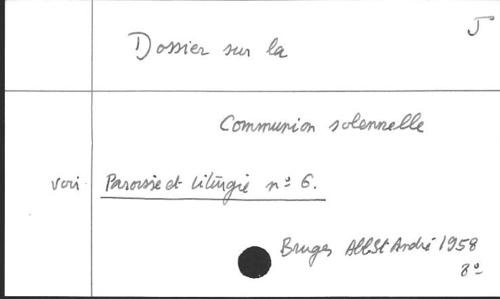 J
Dossier sur la
Communion solennelle
voir Paroisse et Liturgie nº 6.
Bruges Abb. St André 1958
8º